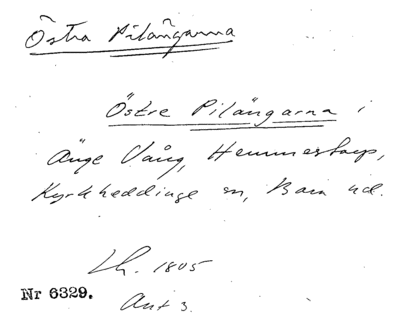 Östra Pilängarna
Östre Pilängarna i
Änge Vång, Hemmestorp,
Kyrkheddinge sn, Bara hd.
Lh. 1805
Nr 6329.
Akt 3.